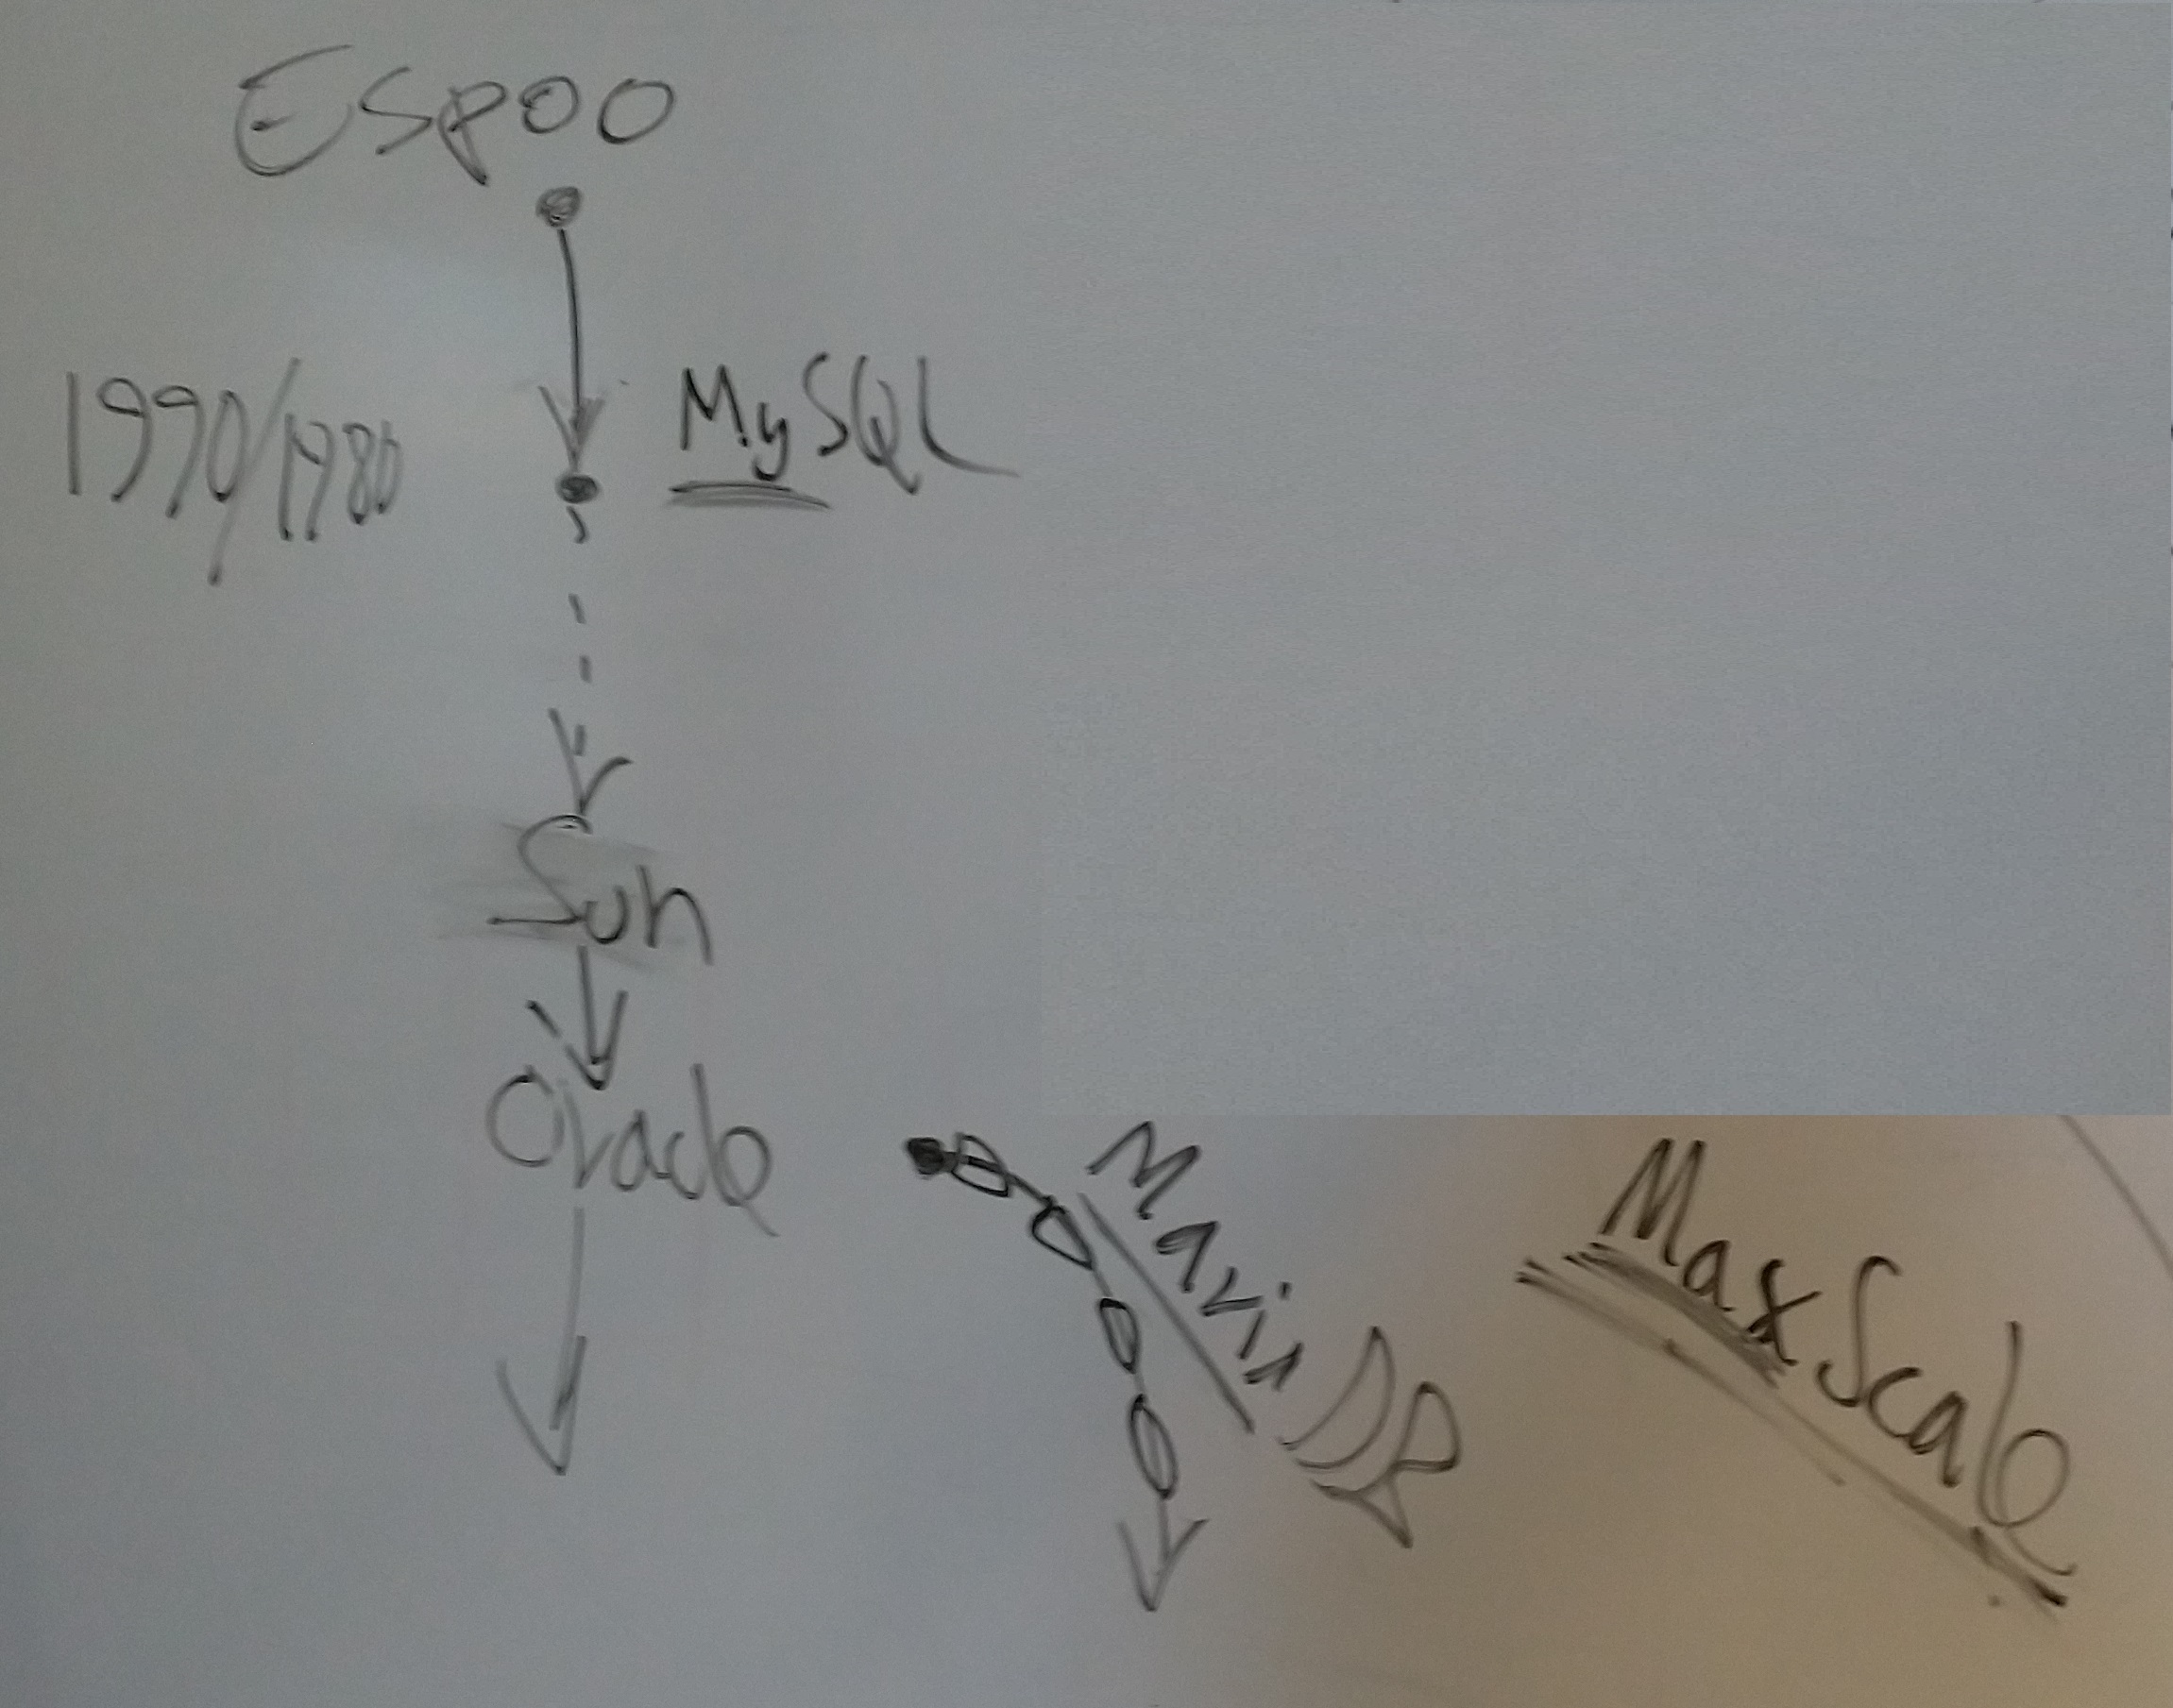 Espoo
1990/1980
MySQL
Sun
Oracle
MariaDB
MaxScale